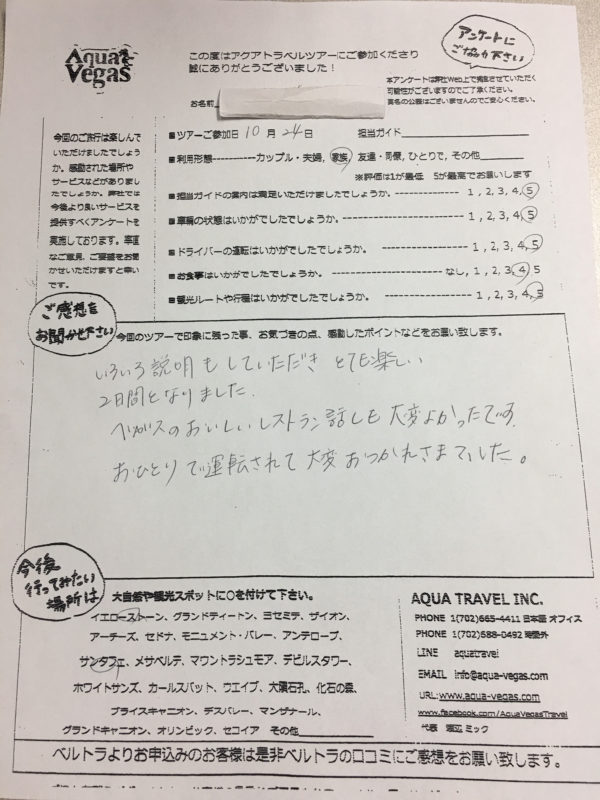 Aqua Vegas
この度はアクアトラベルツアーにご参加くださり
誠にありがとうございました！
アンケートに
ご協力下さい
本アンケートは弊社Web上で掲載させていただく
可能性がございますのでご了承ください。
実名の公表はございませんのでご安心ください。
お名前
今回のご旅行は楽しんで
いただけましたでしょう
か。感動された場所や
サービスなどがありまし
たでしょうか。弊社では
今後より良いサービスを
提供すべくアンケートを
実施しております。率直
なご意見、ご要望をお聞
かせいただけますと幸い
です。
■ツアーご参加日 10 月 24 日 担当ガイド
■利用形態-----------カップル・夫婦, 家族, 友達・同僚, ひとりで, その他
※評価は1が最低 5が最高でお願いします
■担当ガイドの案内は満足いただけましたでしょうか。------------ 1 , 2, 3, 4, 5
■車輌の状態はいかがでしたでしょうか。------------------------ 1 , 2, 3, 4, 5
■ドライバーの運転はいかがでしたでしょうか。------------------ 1 , 2, 3, 4, 5
■お食事はいかがでしたでしょうか。 ------------------------ なし, 1, 2, 3, 4, 5
■観光ルートや行程はいかがでしたでしょうか。------------------ 1 , 2, 3, 4, 5
ご感想を
お聞かせ下さい
今回のツアーで印象に残った事、お気づきの点、感動したポイントなどをお願い致します。
いろいろ説明もしていただき とても楽しい
2日間となりました.
ベガスのおいしいレストラン話しも大変よかったです.
おひとりで運転されて大変おつかれさまでした。
今後
行ってみたい
場所は
大自然や観光スポットに○を付けて下さい。
イエローストーン、グランドティートン、ヨセミテ、ザイオン、
アーチーズ、セドナ、モニュメント・バレー、アンテロープ、
サンタフェ、メサベルテ、マウントラシュモア、デビルスタワー、
ホワイトサンズ、カールスバット、ウエイブ、大隕石孔、化石の森、
ブライスキャニオン、デスバレー、マンザナール、
グランドキャニオン、オリンピック、セコイア その他
AQUA TRAVEL INC.
PHONE 1(702)665-4411 日本語 オフィス
PHONE 1(702)588-0492 時間外
LINE aquatravel
EMAIL info@aqua-vegas.com
URL:www.aqua-vegas.com
www.facebook.com/AquaVegasTravel
代表 渡辺 ミック
ベルトラよりお申込みのお客様は是非ベルトラの口コミにご感想をお願い致します。